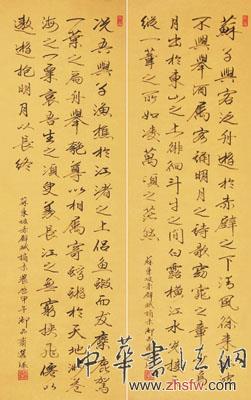 蘇子與客泛舟遊於赤壁之下清風徐來水波
不興舉酒屬客誦明月之詩歌窈窕之章焉
月出於東山之上徘徊斗牛之間白露橫江水光接
縱一葦之所如凌萬頃之茫然
蘇東坡赤壁賦摘錄
況吾與子漁樵於江渚之上侶魚蝦而友麋鹿駕
一葉之扁舟舉匏尊以相屬寄蜉蝣於天地渺滄
海之一粟哀吾生之須臾羨長江之無窮挾飛僊以
遨遊抱明月以長終
蘇東坡赤壁賦摘錄
甲午
中華書法網
www.zhsfw.com